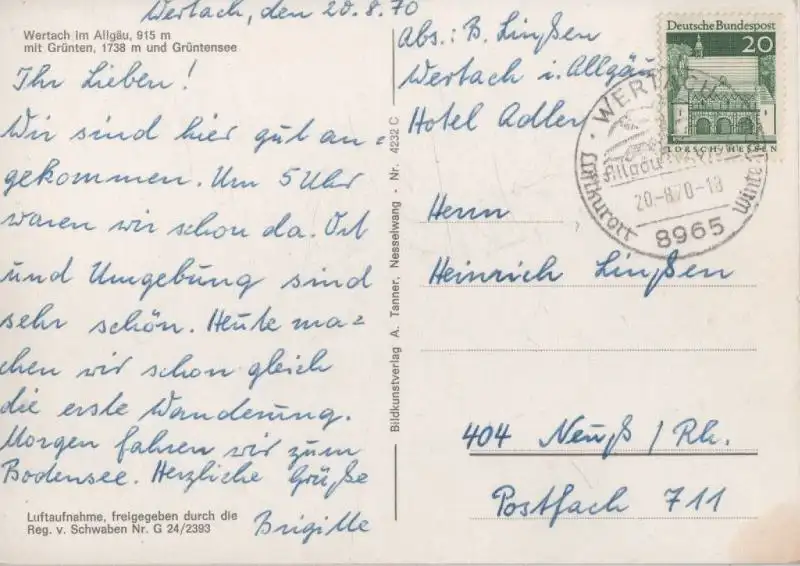 Wertach, den 20.8.70
Wertach im Allgäu, 915 m
mit Grünten, 1738 m und Grüntensee
Ihr Lieben!
Wir sind hier gut an=
gekommen. Um 5 Uhr
waren wir schon da. Ort
und Umgebung sind
sehr schön. Heute ma=
chen wir schon gleich
die erste Wanderung.
Morgen fahren wir zum
Bodensee. Herzliche Grüße
Brigitte
Luftaufnahme, freigegeben durch die
Reg. v. Schwaben Nr. G 24/2393
Bildkunstverlag A. Tanner, Nesselwang - Nr. 4232 C
Abs.: B. Linßen
Wertach i. Allgäu
Hotel Adler
Deutsche Bundespost
20
LORSCH/HESSEN
WERTACH
Allgäu
Luftkurort
20.-8.70-18
8965
Herrn
Heinrich Linßen
404 Neuß/Rh.
Postfach 711